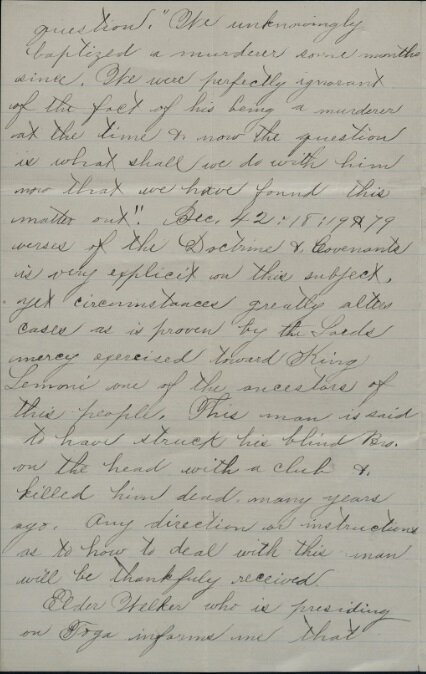 question. "We unknowingly
baptized a murderer some months
since. We were perfectly ignorant
of the fact of his being a murderer
at the time & now the question
is what shall we do with him
now that we have found this
matter out". Sec. 42:18:19&79
verses of the Doctrine & Covenants
is very explicit on this subject,
yet circumstances greatly alters
cases as is proven by the Lords
mercy exercised toward King
Lemoni one of the ancestors of
this people. This man is said
to have struck his blind Bro.
on the head with a club &
killed him dead, many years
ago. Any direction or instructions
as to how to deal with this man
will be thankfuly received.
Elder Welker who is presiding
on Toga informs me that